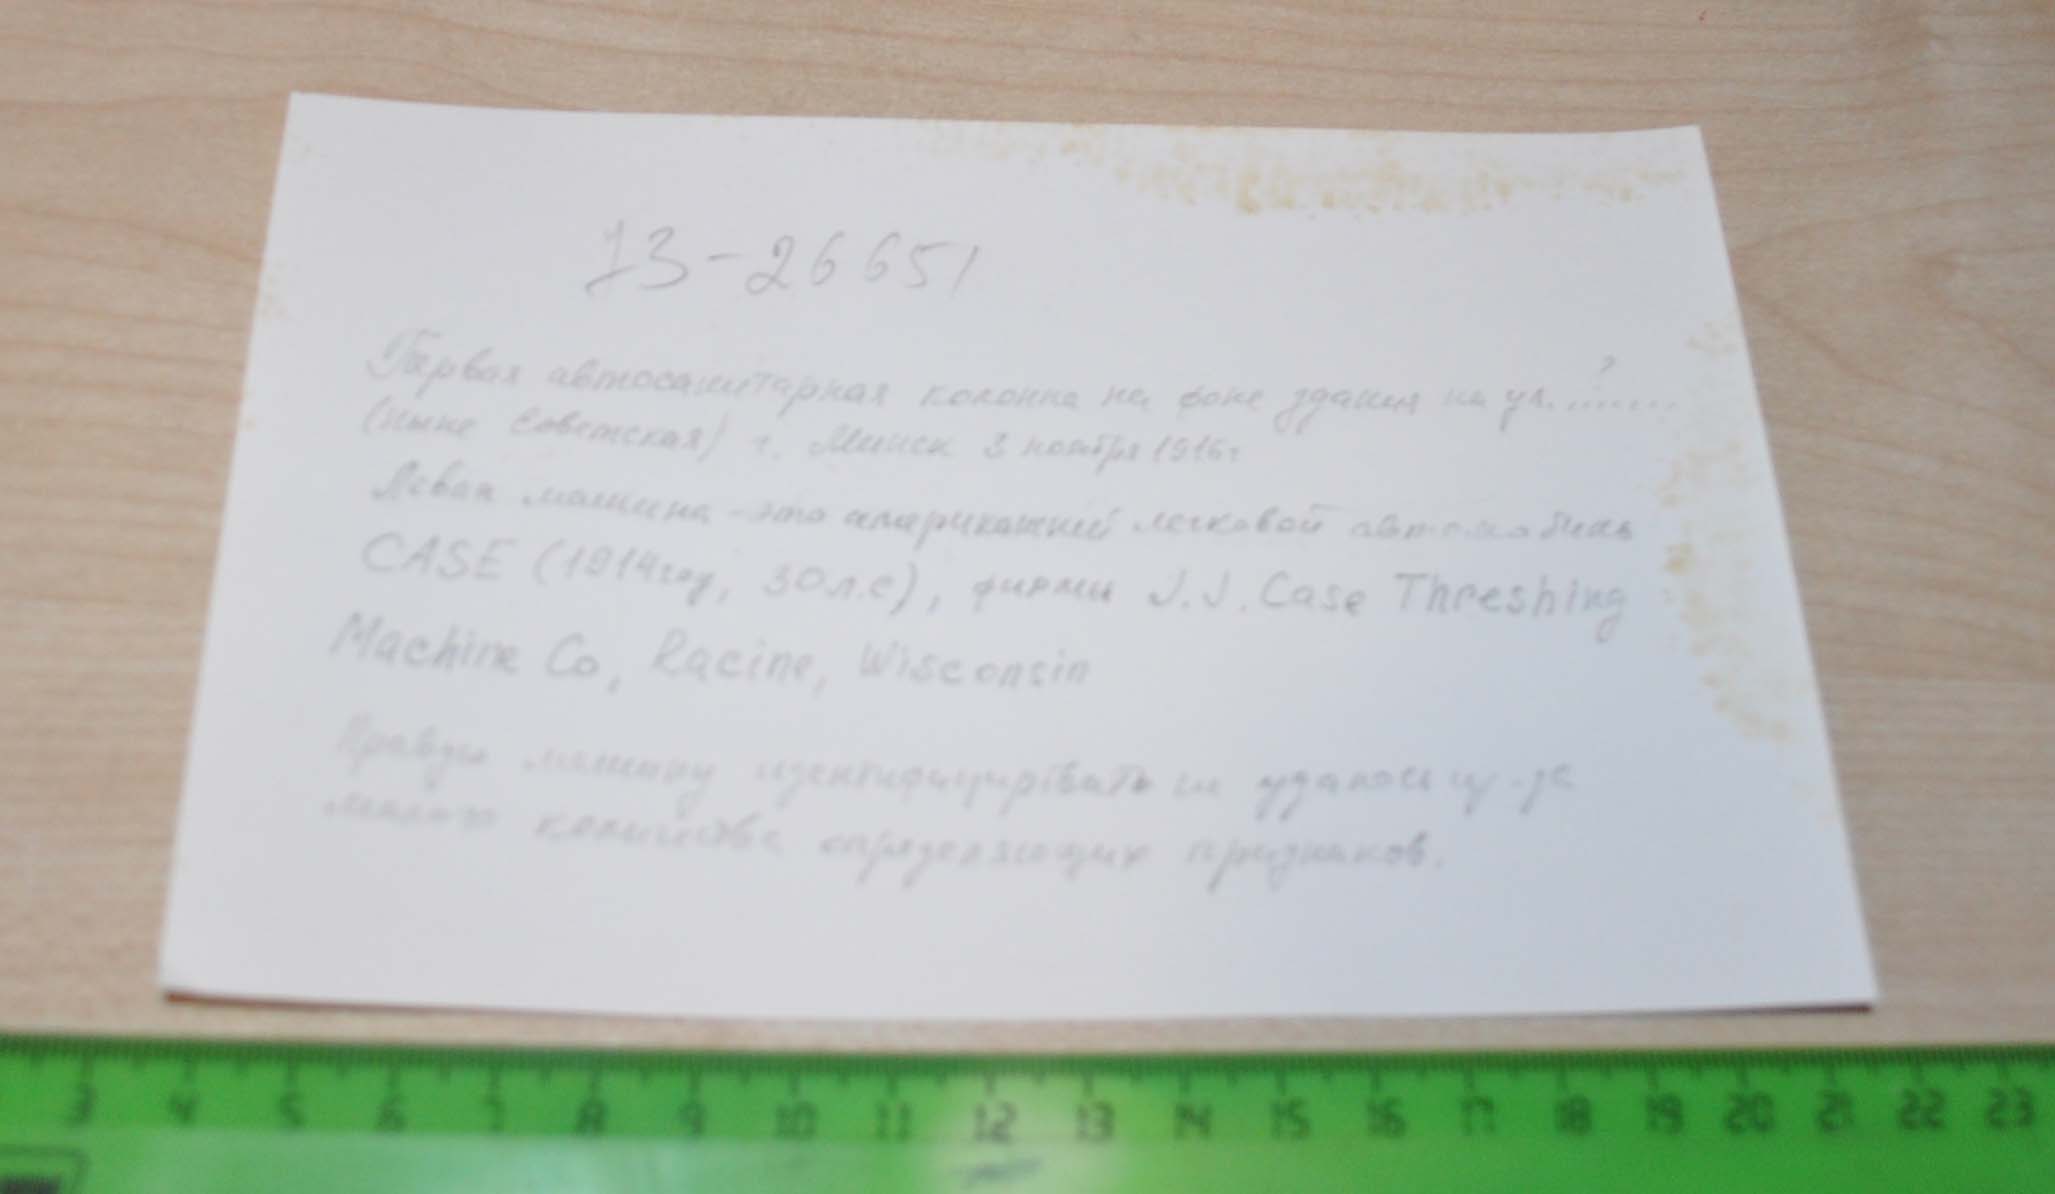 13-26651
?
Первая автосанитарная колонна на фоне здания на ул. ........
(ныне Советская) г. Минск 3 ноября 1916г
Левая машина - это американский легковой автомобиль
CASE (1914год, 30 л.с), фирмы J.J. Case Threshing
Machine Co, Racine, Wisconsin
Правую машину идентифицировать не удалось из-за
малого количества определяющих признаков.
3 4 5 6 7 8 9 10 11 12 13 14 15 16 17 18 19 20 21 22 23